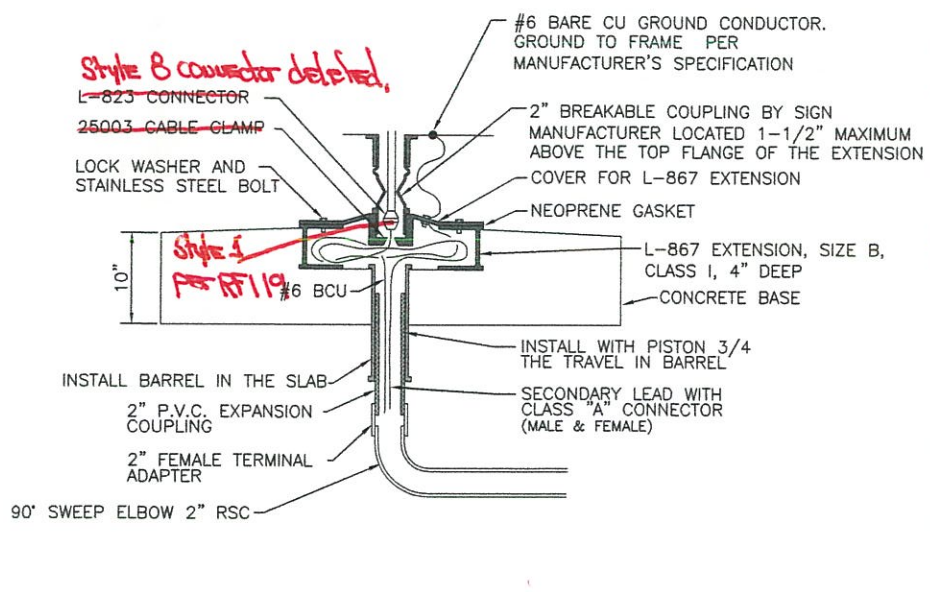 #6 BARE CU GROUND CONDUCTOR.
GROUND TO FRAME PER
MANUFACTURER'S SPECIFICATION
Style 8 connector deleted.
L-823 CONNECTOR
25003 CABLE CLAMP
LOCK WASHER AND
STAINLESS STEEL BOLT
2" BREAKABLE COUPLING BY SIGN
MANUFACTURER LOCATED 1-1/2" MAXIMUM
ABOVE THE TOP FLANGE OF THE EXTENSION
COVER FOR L-867 EXTENSION
NEOPRENE GASKET
L-867 EXTENSION, SIZE B,
CLASS I, 4" DEEP
CONCRETE BASE
10"
Style 1
per RFI 19
#6 BCU
INSTALL WITH PISTON 3/4
THE TRAVEL IN BARREL
INSTALL BARREL IN THE SLAB
2" P.V.C. EXPANSION
COUPLING
SECONDARY LEAD WITH
CLASS "A" CONNECTOR
(MALE & FEMALE)
2" FEMALE TERMINAL
ADAPTER
90° SWEEP ELBOW 2" RSC